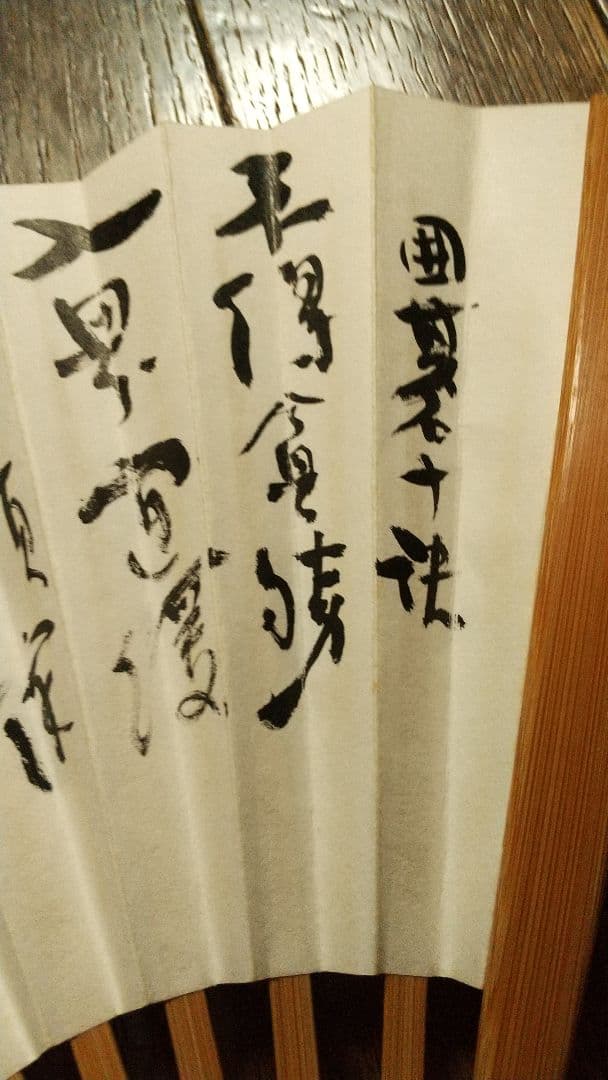 囲碁十訣
不得貪勝
入界宜緩